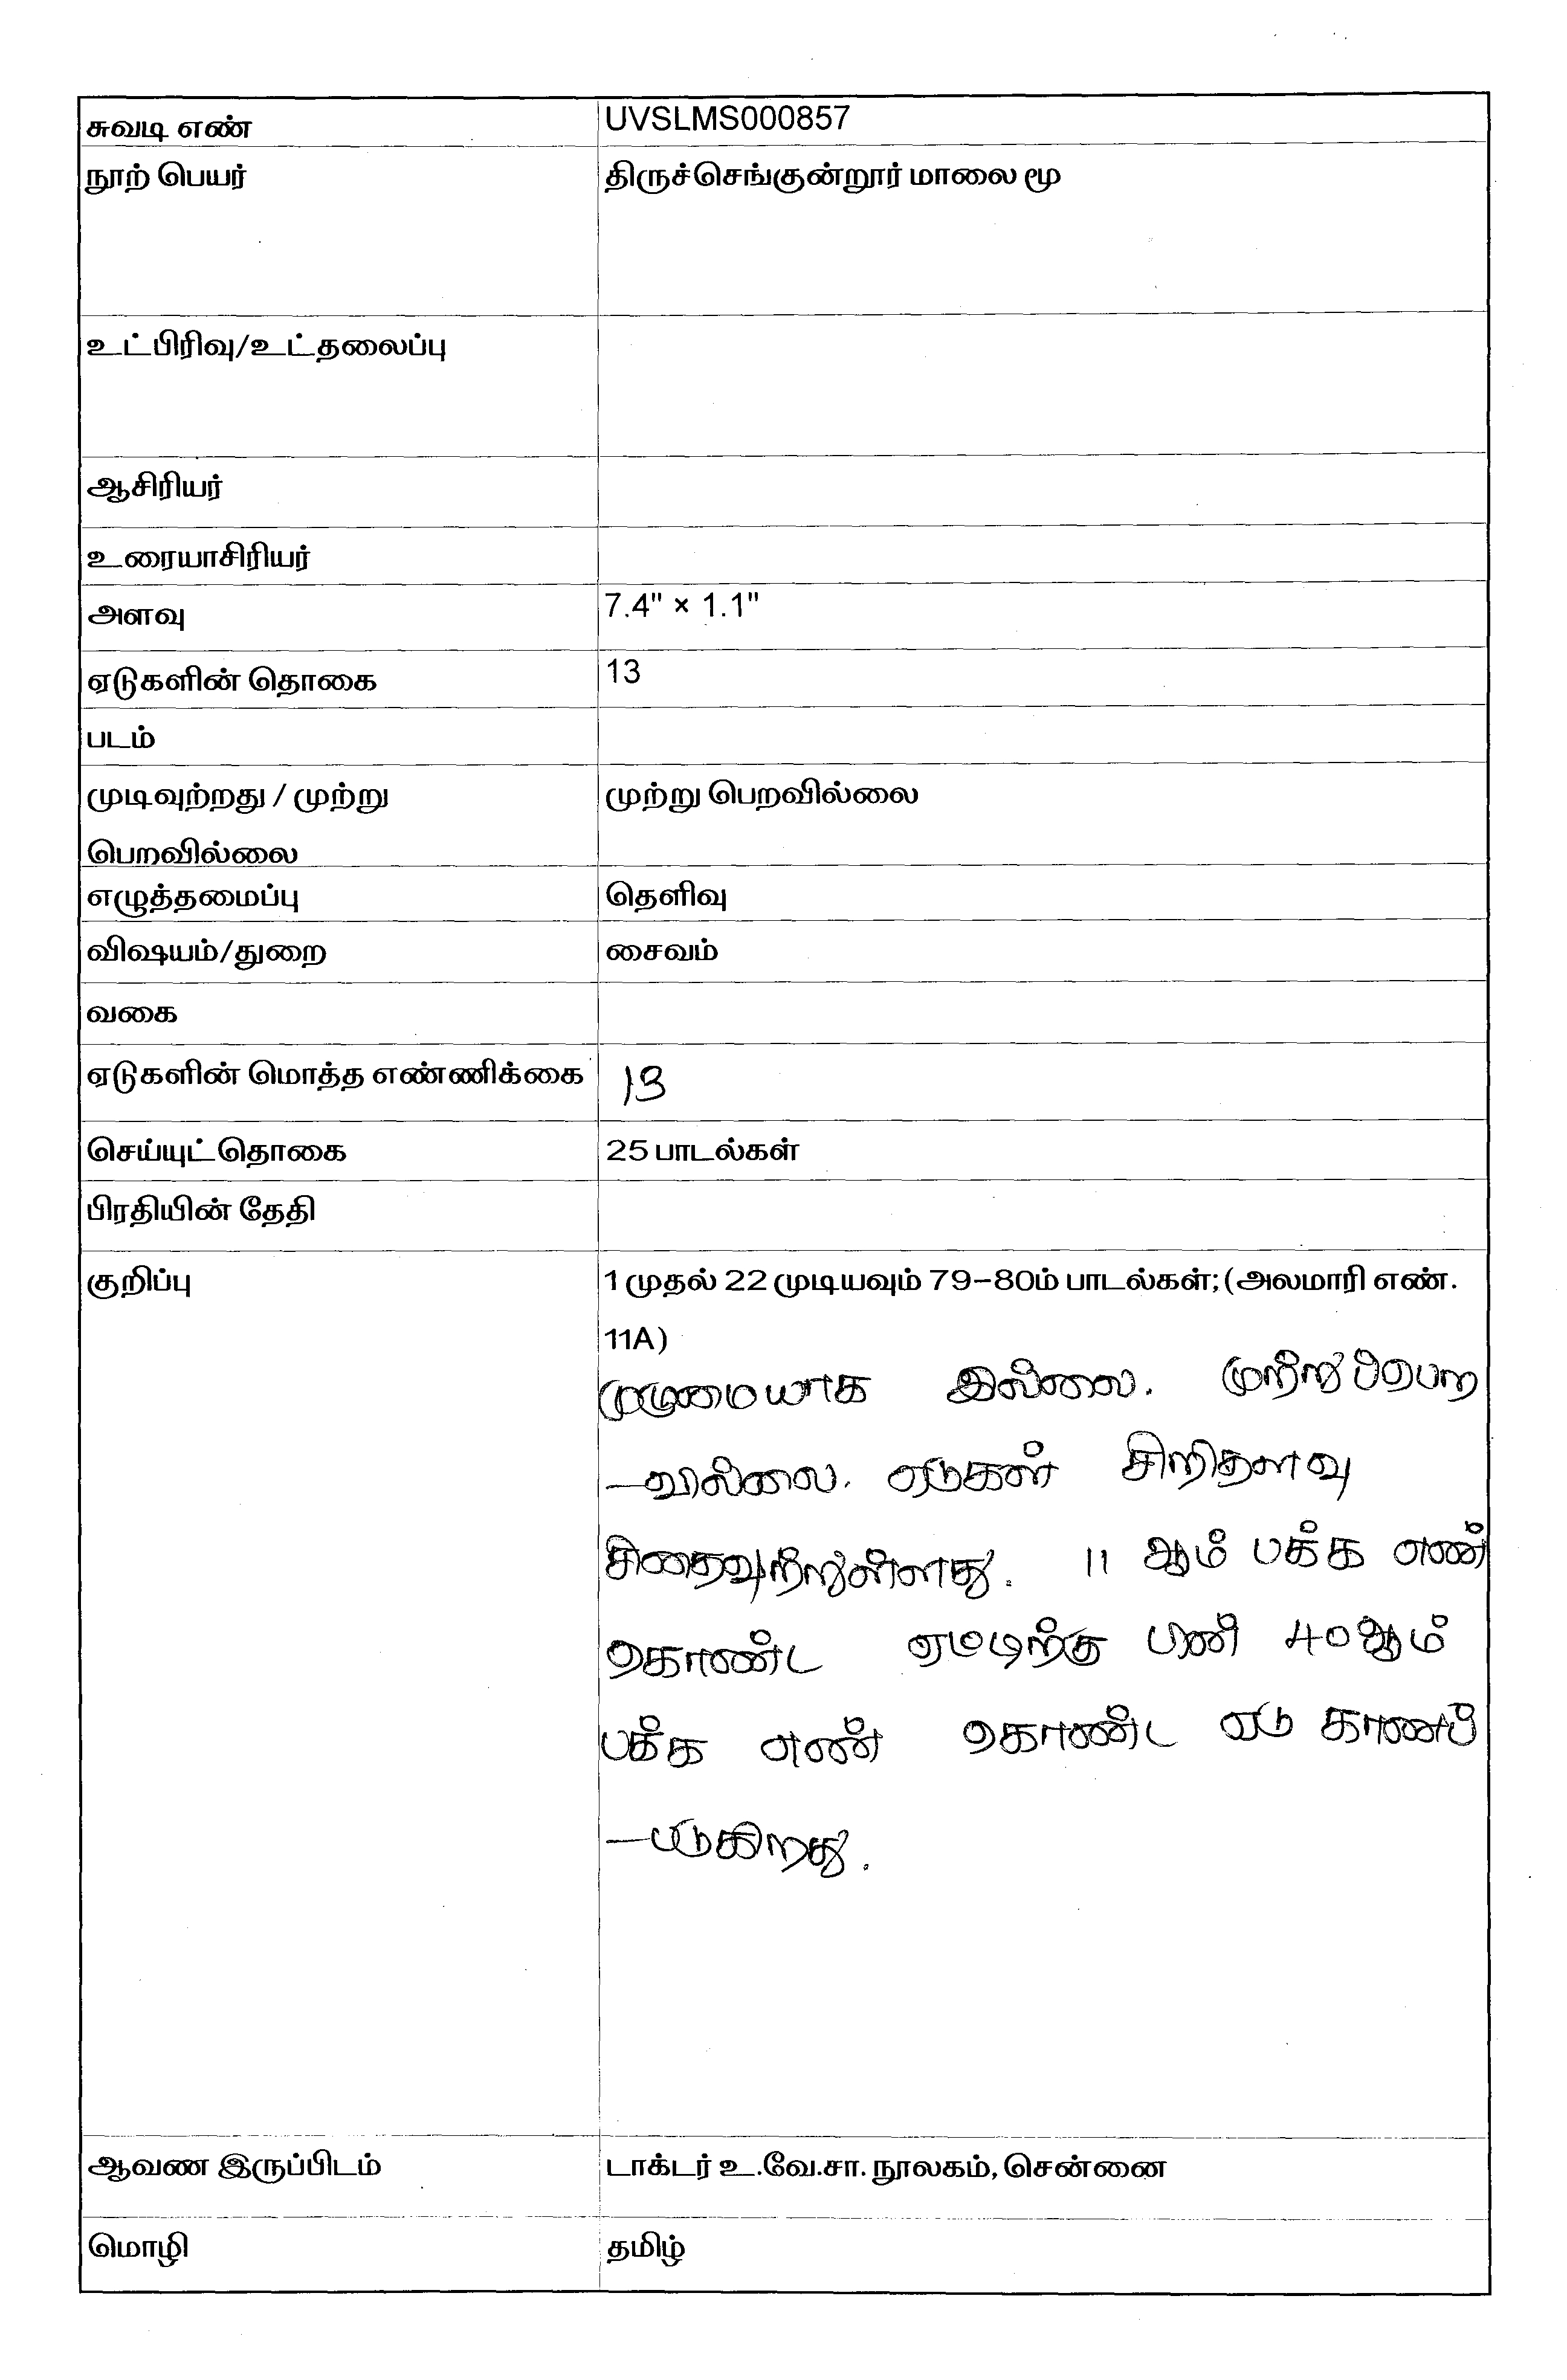 சுவடி எண் UVSLMS000857
நூற் பெயர் திருச்செங்குன்றூர் மாலை மூ
உட்பிரிவு/உட்தலைப்பு
ஆசிரியர்
உரையாசிரியர்
அளவு 7.4" × 1.1"
ஏடுகளின் தொகை 13
படம்
முடிவுற்றது / முற்று முற்று பெறவில்லை
பெறவில்லை
எழுத்தமைப்பு தெளிவு
விஷயம்/துறை சைவம்
வகை
ஏடுகளின் மொத்த எண்ணிக்கை 13
செய்யுட்தொகை 25 பாடல்கள்
பிரதியின் தேதி
குறிப்பு 1 முதல் 22 முடியவும் 79-80ம் பாடல்கள்; (அலமாரி எண்.
11A)
முழுமையாக இல்லை. முற்றுப்பெற
-வில்லை. ஏடுகள் சிறிதளவு
சிதைவுற்றுள்ளது. 11 ஆம் பக்க எண்
கொண்ட ஏட்டிற்கு பின் 40ஆம்
பக்க எண் கொண்ட ஏடு காணப்
-படுகிறது.
ஆவண இருப்பிடம் டாக்டர் உ.வே.சா. நூலகம், சென்னை
மொழி தமிழ்